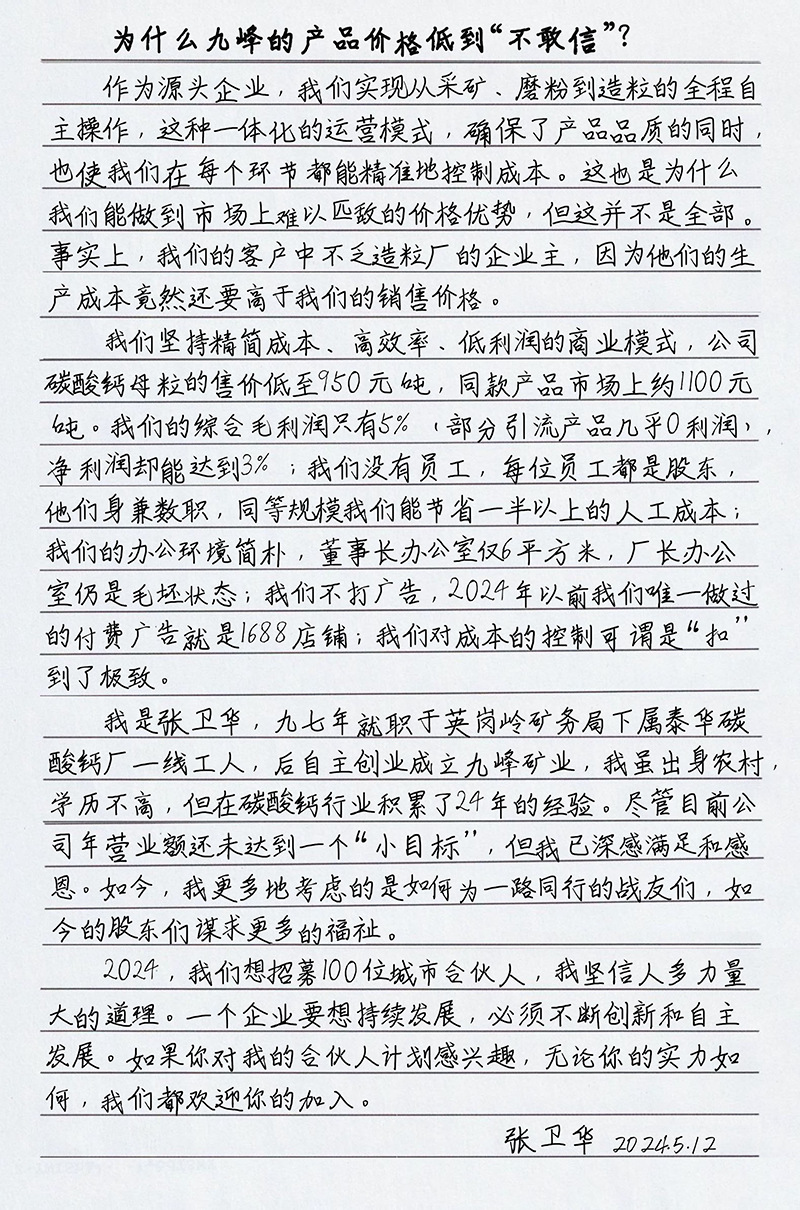 为什么九峰的产品价格低到“不敢信”？
作为源头企业，我们实现从采矿、磨粉到造粒的全程自
主操作，这种一体化的运营模式，确保了产品品质的同时，
也使我们在每个环节都能精准地控制成本。这也是为什么
我们能做到市场上难以匹敌的价格优势，但这并不是全部。
事实上，我们的客户中不乏造粒厂的企业主，因为他们的生
产成本竟然还要高于我们的销售价格。
我们坚持精简成本、高效率、低利润的商业模式，公司
碳酸钙母粒的售价低至950元/吨，同款产品市场上约1100元
/吨。我们的综合毛利润只有5%（部分引流产品几乎0利润），
净利润却能达到3%；我们没有员工，每位员工都是股东，
他们身兼数职，同等规模我们能节省一半以上的人工成本；
我们的办公环境简朴，董事长办公室仅6平方米，厂长办公
室仍是毛坯状态；我们不打广告，2024年以前我们唯一做过
的付费广告就是1688店铺；我们对成本的控制可谓是“扣”
到了极致。
我是张卫华，九七年就职于英岗岭矿务局下属泰华碳
酸钙厂一线工人，后自主创业成立九峰矿业，我虽出身农村，
学历不高，但在碳酸钙行业积累了24年的经验。尽管目前公
司年营业额还未达到一个“小目标”，但我已深感满足和感
恩。如今，我更多地考虑的是如何为一路同行的战友们，如
今的股东们谋求更多的福祉。
2024，我们想招募100位城市合伙人，我坚信人多力量
大的道理。一个企业要想持续发展，必须不断创新和自主
发展。如果你对我的合伙人计划感兴趣，无论你的实力如
何，我们都欢迎你的加入。
张卫华 2024.5.12